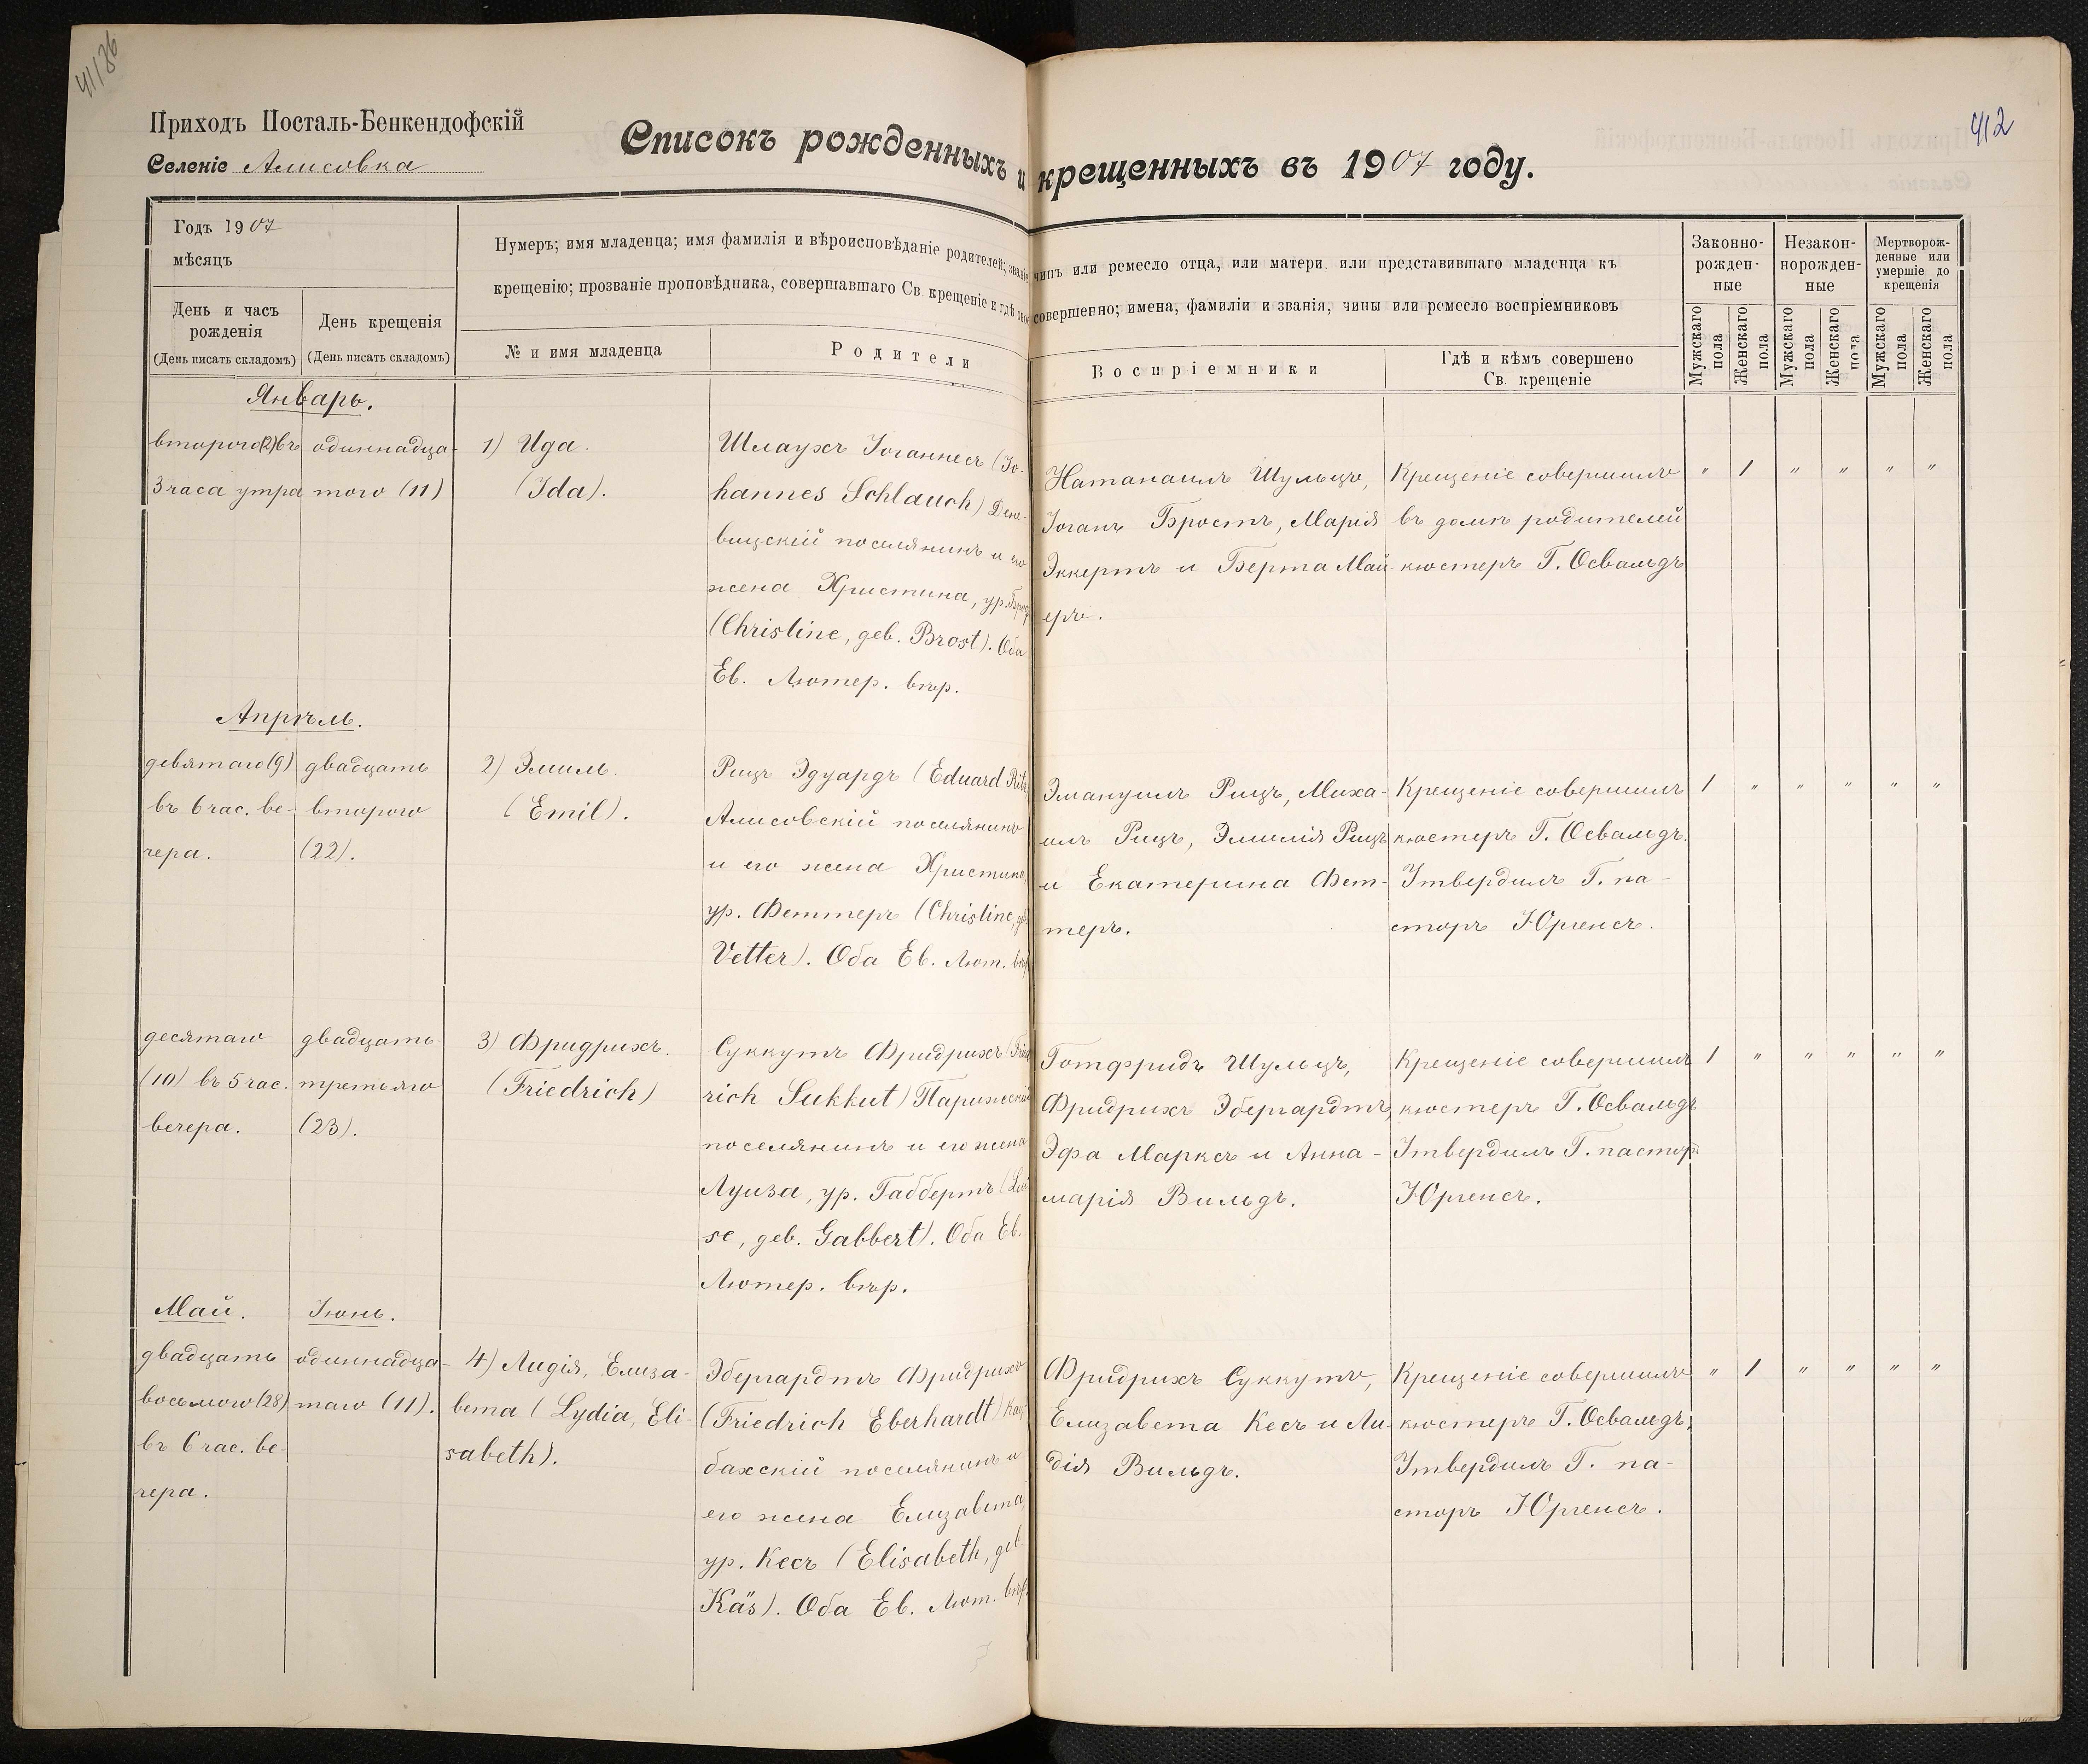 41/86
412
Приходъ Посталь-Бенкендофскій
Селеніе Алисовка
Списокъ рожденныхъ и крещенныхъ въ 1907 году.
Годъ 1907
мѣсяцъ
День и часъ
рожденія
(День писать складомъ)
День крещенія
(День писать складомъ)
Нумеръ; имя младенца; имя фамилія и вѣроисповѣданіе родителей; званіе чинъ или ремесло отца, или матери или представившаго младенца къ
крещенію; прозваніе проповѣдника, совершавшаго Св. крещеніе и гдѣ оное совершенно; имена, фамиліи и званія, чины или ремесло воспріемниковъ
№ и имя младенца
Родители
Воспріемники
Гдѣ и кѣмъ совершено
Св. крещеніе
Законно-
рожден-
ные
Незакон-
норожден-
ные
Мертворож-
денные или
умершіе до
крещенія
Мужскаго
пола
Женскаго
пола
Мужскаго
пола
Женскаго
пола
Мужскаго
пола
Женскаго
пола
Январь.
второго (2) въ
3 часа утра
одиннадца-
того (11)
1) Ида.
(Ida).
Шлаухъ Іоганнесъ (Jo-
hannes Schlauch) Дене-
вицскій поселянинъ и его
жена Христина, ур. Брост
(Christine, geb. Brost). Оба
Ев. Лютер. вѣр.
Натанаилъ Шульцъ,
Іоганъ Бростъ, Марія
Эккертъ и Берта Май-
еръ.
Крещеніе совершилъ
въ домѣ родителей
кюстеръ Г. Освальдъ
" 1 " " " "
Апрѣль.
девятаго (9)
въ 6 час. ве-
чера.
двадцать
второго
(22).
2) Эмиль.
(Emil).
Рицъ Эдуардъ (Eduard Ritz)
Алисовскій поселянинъ
и его жена Христина,
ур. Феттеръ (Christine, geb.
Vetter). Оба Ев. Лют. вѣр.
Эмануилъ Рицъ, Миха-
илъ Рицъ, Эмилія Рицъ
и Екатерина Фет-
теръ.
Крещеніе совершилъ
кюстеръ Г. Освальдъ.
Утвердилъ Г. па-
сторъ Юргенсъ.
1 " " " " "
десятаго
(10) въ 5 час.
вечера.
двадцать-
третьяго
(23).
3) Фридрихъ.
(Friedrich)
Суккутъ Фридрихъ (Fried-
rich Sukkut) Парижскій
поселянинъ и его жена
Луиза, ур. Габбертъ (Loui-
se, geb. Gabbert). Оба Ев.
Лютер. вѣр.
Готфридъ Шульцъ,
Фридрихъ Эбергардтъ,
Эфа Марксъ и Анна-
марія Вильдъ.
Крещеніе совершилъ
кюстеръ Г. Освальдъ
Утвердилъ Г. пасторъ
Юргенсъ.
1 " " " " "
Май.
Іюнь.
двадцать
восьмого (28)
въ 6 час. ве-
чера.
одиннадца-
таго (11).
4) Лидія, Елиза-
вета (Lydia, Eli-
sabeth).
Эбергардтъ Фридрихъ
(Friedrich Eberhardt) Кац-
бахскій поселянинъ и
его жена Елизавета,
ур. Кесъ (Elisabeth, geb.
Käs). Оба Ев. Лют. вѣр.
Фридрихъ Суккутъ,
Елизавета Кесъ и Ли-
дія Вильдъ.
Крещеніе совершилъ
кюстеръ Г. Освальдъ;
Утвердилъ Г. па-
сторъ Юргенсъ.
" 1 " " " "